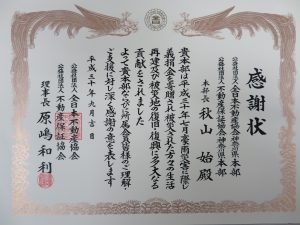 感謝状
公益社団法人 全日本不動産協会神奈川県本部
公益社団法人 不動産保証協会神奈川県本部
本部長 秋山 始殿
貴本部は平成三十年七月豪雨災害に際し
義捐金を寄贈され被災された方々の生活
再建及び被災地の復旧・復興に多大なる
貢献をされました
よって貴本部ならびに所属会員皆様のご理解
ご支援に対し深く感謝の意を表します
平成三十年九月吉日
公益社団法人 全日本不動産協会
公益社団法人 不動産保証協会
理事長 原嶋和利